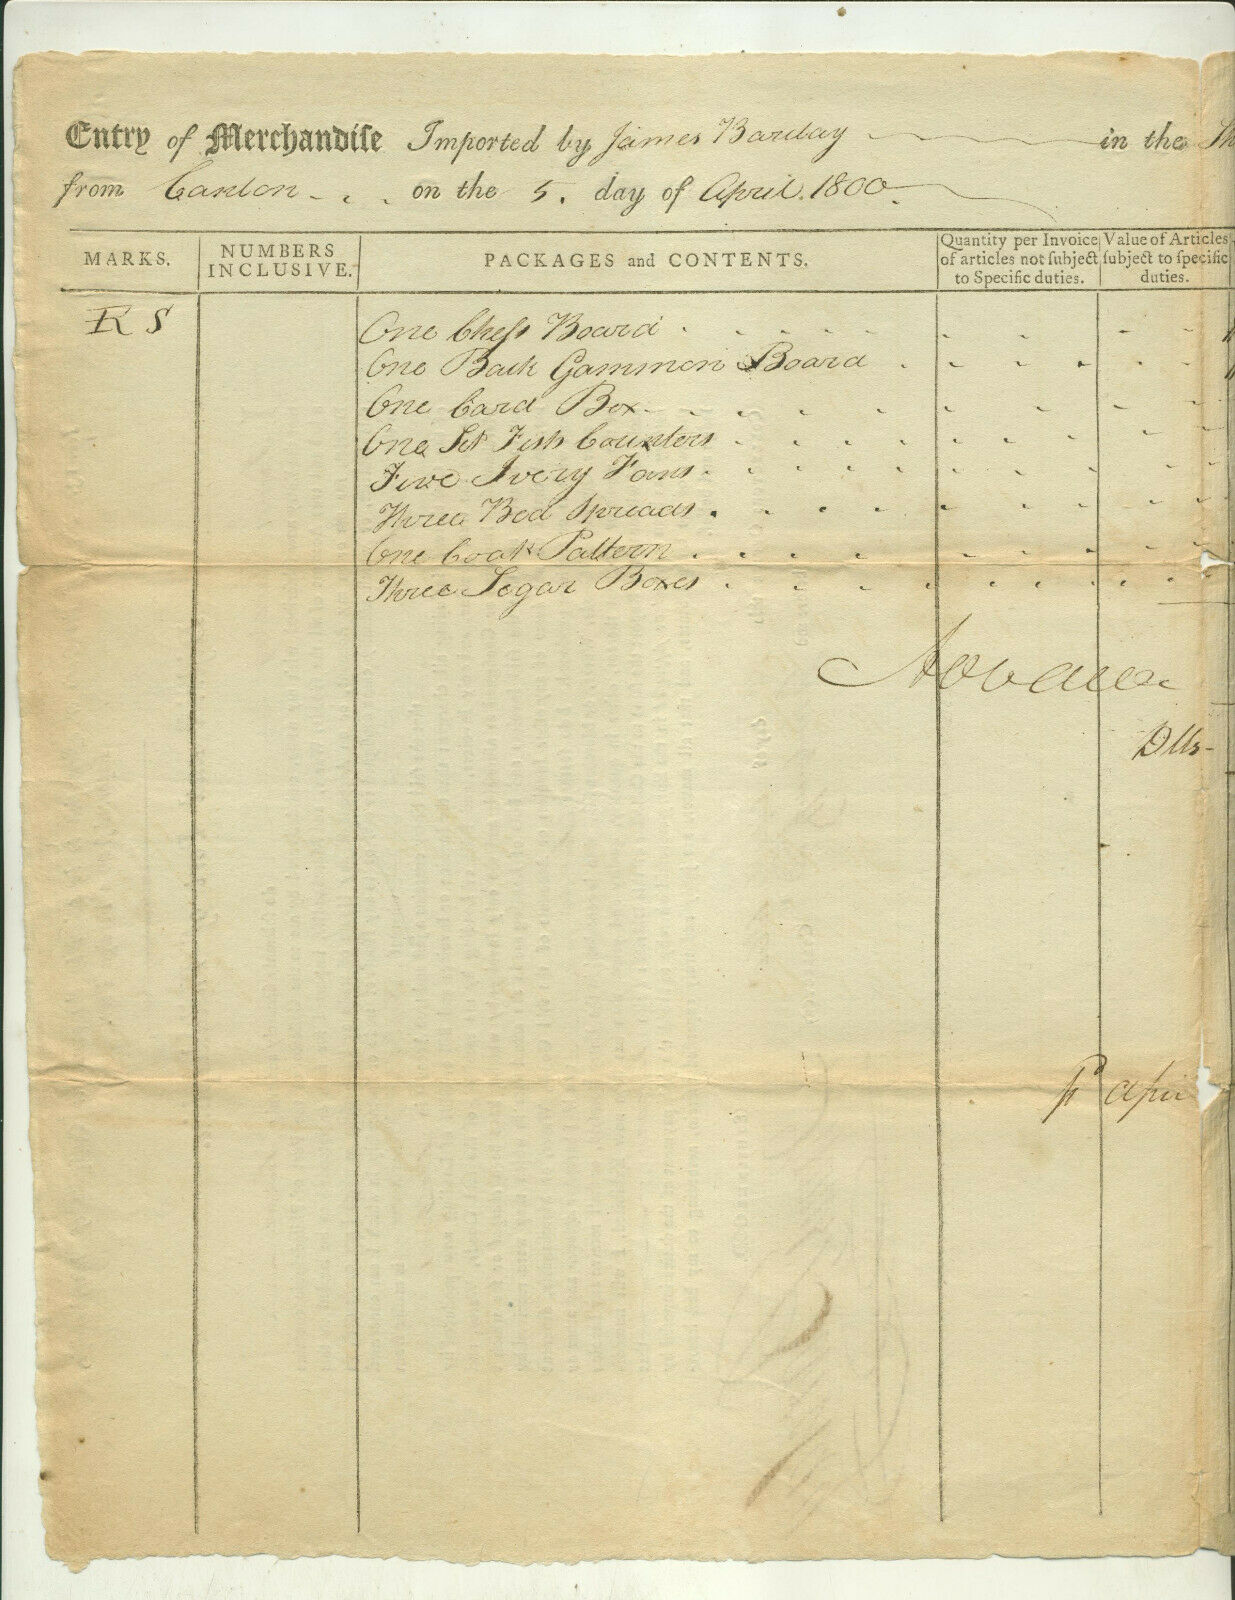 Entry of Merchandiſe Imported by James Barclay in the Sh
from Canton on the 5. day of April. 1800.
MARKS.
NUMBERS INCLUSIVE.
PACKAGES and CONTENTS.
Quantity per Invoice of articles not ſubject to Specific duties.
Value of Articles ſubject to ſpecific duties.
RS
One Cheſs Board
One Back Gammon Board
One Card Box
One Set Fish Counters
Five Ivory Fans
Three Bed Spreads
One Coat Pattern
Three Segar Boxes
Advance
Dlls